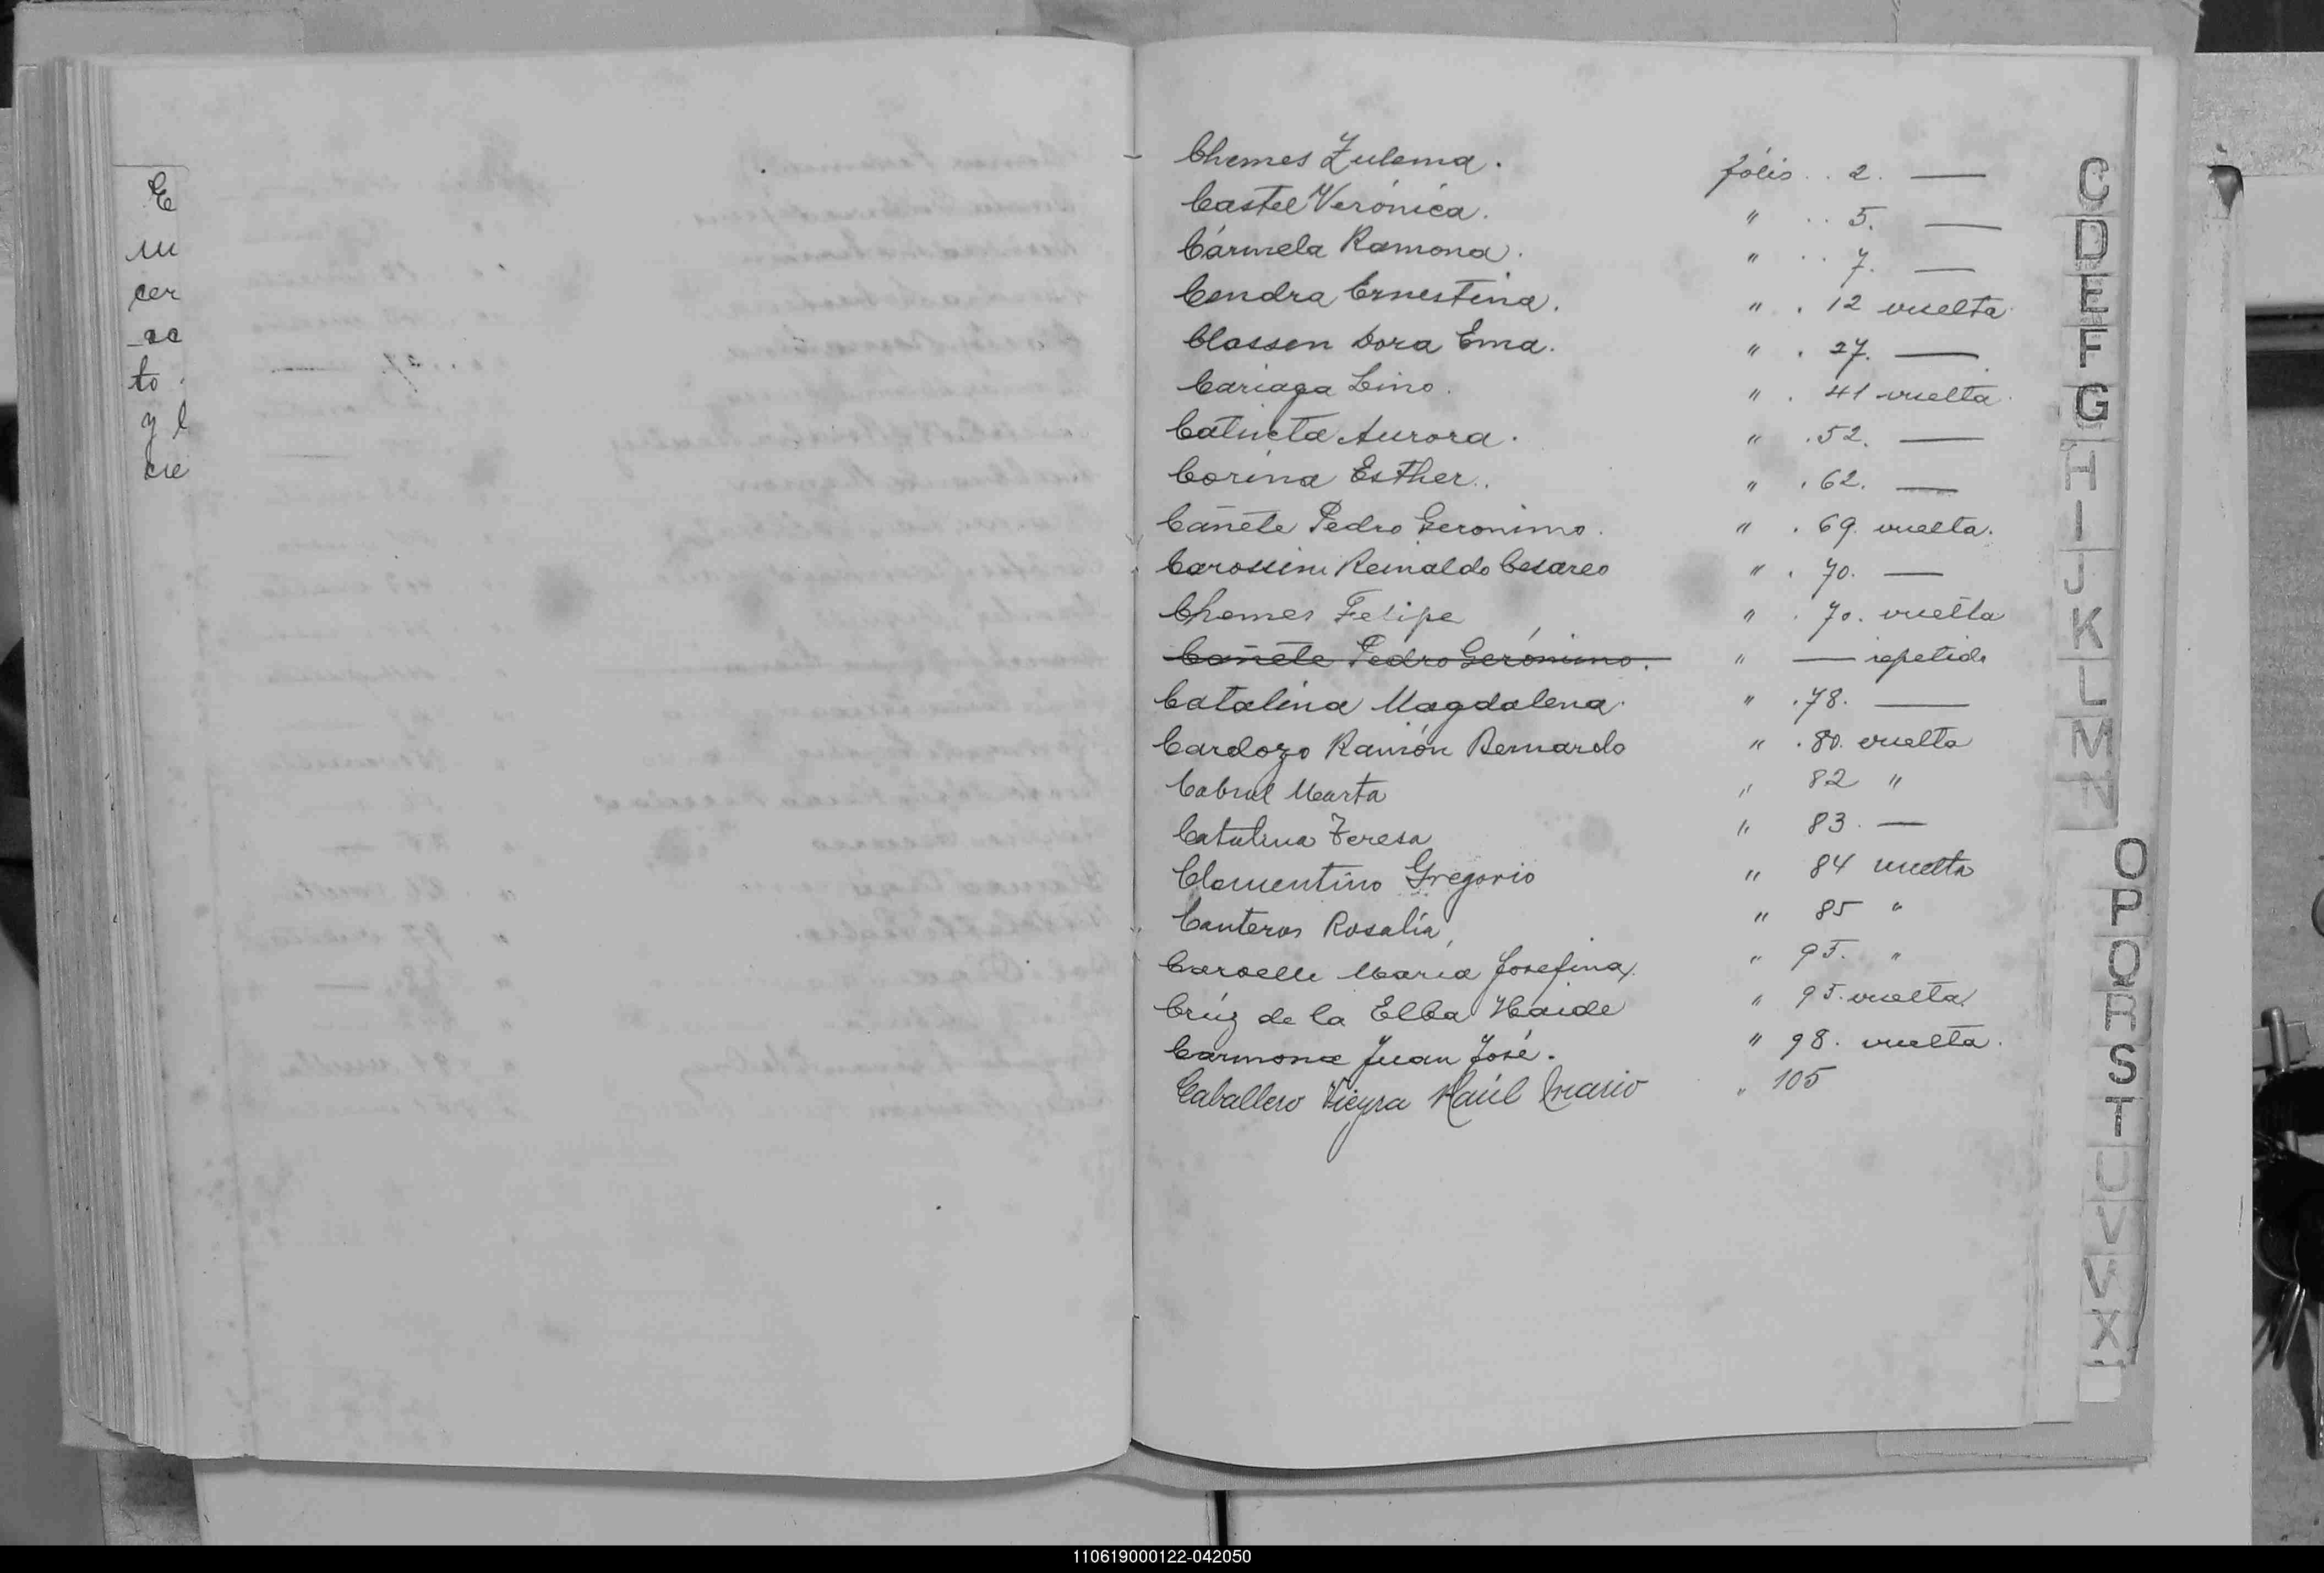 E
m
cer
to
y l
cre
Chemes Zulema. fólio . . 2. —
Castel Verónica. " . . 5. —
Cármela Ramona. " . . 7. —
Cendra Ernestina. " . 12 vuelta.
Classen Dora Ema. " . 27. —
Cariaga Lino. " . 41 vuelta.
Aurora. " . 52. —
Corina Esther.. " . 62. —
Cañete Pedro Geronimo. " . 69. vuelta.
Carossini Reinaldo Cesareo " . 70. —
Chemes Felipe " . 70. vuelta
Cañete Pedro Gerónimo. " — repetido
Catalina Magdalena. " . 78. —
Cardozo Ramón Bernardo " . 80. vuelta
Cabral Marta " 82 "
Catalina Teresa " 83. —
Clementino Gregorio " 84 vuelta
Canteros Rosalía " 85 "
María Josefina. " 95. "
Crúz de la Elba Haide " 95. vuelta.
Carmona Juan José. " 98. vuelta.
Caballero Vieyra Raúl Mario " 105
C
D
E
F
G
H
I
J
K
L
M
N
O
P
Q
R
S
T
U
V
V
X
110619000122-042050